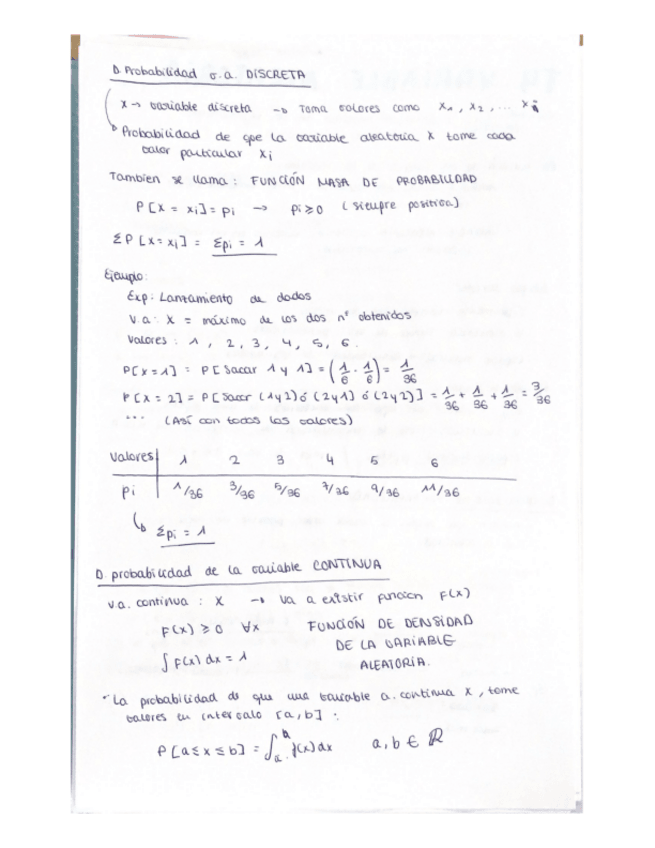 D. Probabilidad v.a. DISCRETA
X → variable discreta → Toma valores como x₁, x₂, ... xᵢ
Probabilidad de que la variable aleatoria X tome cada
valor particular xᵢ
Tambien se llama: FUNCIÓN MASA DE PROBABILIDAD
P[X = xᵢ] = pᵢ → pᵢ ≥ 0 (siempre positiva)
ΣP[X = xᵢ] = Σpᵢ = 1
Ejemplo:
Exp: Lanzamiento de dados
V.a: X = máximo de los dos nº obtenidos
Valores: 1, 2, 3, 4, 5, 6.
P[X = 1] = P[Sacar 1 y 1] = (1/6 · 1/6) = 1/36
P[X = 2] = P[Sacar (1y2) ó (2y1) ó (2y2)] = 1/36 + 1/36 + 1/36 = 3/36
... (Así con todos los valores)
Valores | 1 2 3 4 5 6
pi | 1/36 3/36 5/36 7/36 9/36 11/36
Σpi = 1
D. probabilidad de la variable CONTINUA
v.a. continua: X → va a existir funcion F(x)
F(x) ≥ 0 ∀x FUNCIÓN DE DENSIDAD
∫ F(x) dx = 1 DE LA VARIABLE
ALEATORIA.
· La probabilidad de que una variable a. continua X, tome
valores en intervalo [a, b]:
P[a ≤ x ≤ b] = ∫ₐᵇ f(x) dx a, b ∈ ℝ